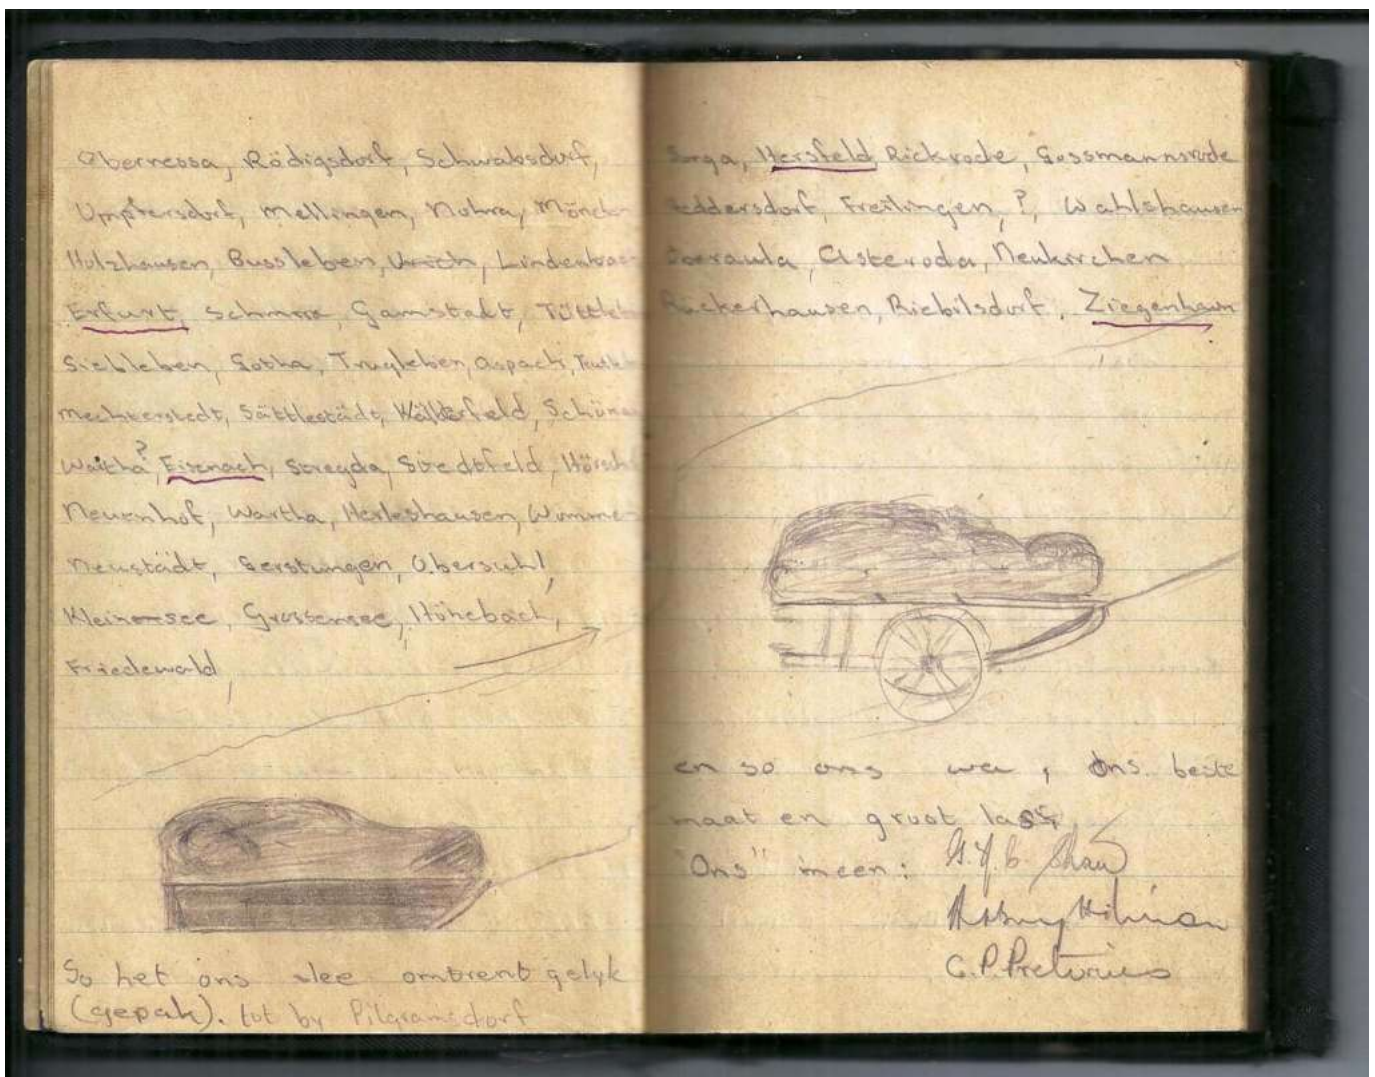 Obernessa, Rödigsdorf, Schwabsdorf,
Umpfersdorf, Mellingen, Nohra, Mönch-
Holzhausen, Bussleben, Urich, Lindenbac
Erfurt, Schmira, Gamstadt, Tüttleb
Siebleben, Gotha, Trugleben, Aspach, Teutl
Mechterstedt, Sättlestädt, Kälberfeld, Schöna
Waitha?, Eisenach, Stregda, Stedtfeld, Hörsch
Neuenhof, Wartha, Herleshausen, Womme
Neustädt, Gerstungen, Obersuhl,
Kleinensee, Grossensee, Höhebach,
Friedewald,
So het ons slee omtrent gelyk
(gepak). tot by Pilgramsdorf
Sorga, Hersfeld, Rickrode, Gossmannsrode
eddersdorf, Freilingen, ?, Wahlshausen
Oberaula, Asteroda, Neukirchen
Rückerhausen, Riebilsdorf, Ziegenhain
en so ons wa, ons beste
maat en groot las
"Ons" meen: G.H.B. Shaw
Hilman
C.P. Pretorius